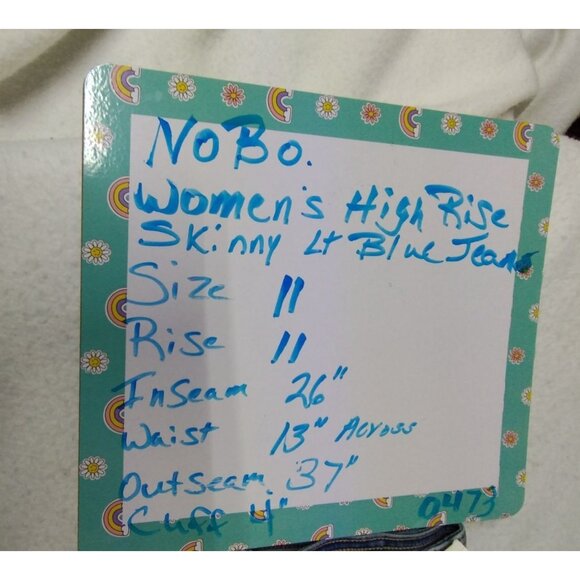 NoBo.
Women's High Rise
Skinny Lt Blue Jeans
Size 11
Rise 11
InSeam 26"
Waist 13" Across
Outseam 37"
Cuff 4"
0473